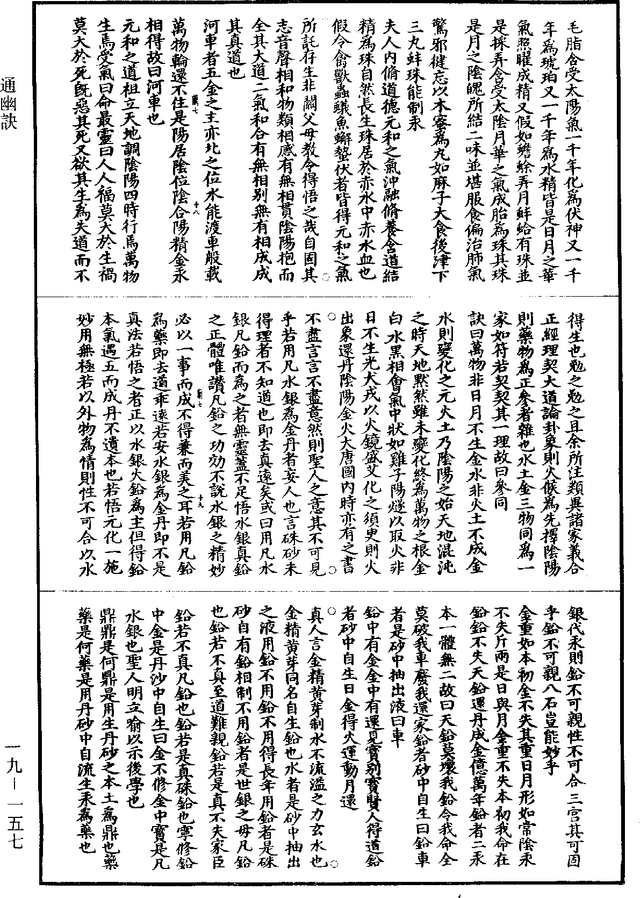 毛脂含受太陽氣一千年化為伏神又一千
年為琥珀又一千年為水精皆是日月之華
氣照曜成精又假如蟾蜍弄月蚌給有珠並
是採弄含受太陰月華之氣成胎為珠其珠
是月之陰魄所結二味並堪服食偏治肺氣
驚邪健忘以本蜜為丸如麻子大食後津下
三丸蚌珠能制汞
夫人內脩道德元和之氣沖融脩養含道結
精為珠自然長生珠居於赤水中赤水血也
假令禽獸蟲蟻魚蠏蟄伏者皆得元和之氣
所託存生非關父母教令得悟之哉自固其
志音聲相和物類相感有無相貫陰陽抱而
全其大道二氣和合有無相別無有相成成
其真道也
河車者五金之主亦北之位水能渡車般載
萬物輪還不住是陽居陰位陰合陽精金汞
相得故曰河車也
元和之道祖立天地調陰陽四時行焉萬物
生焉受氣曰命最靈曰人人福莫大於生禍
莫大於死既惡其死又欲其生為失道而不
得生也勉之勉之且余所注類與諸家義合
正經理契大道論卦象則火候為先擇陰陽
則藥物為正參者雜也水土金三物同為一
家如符若契契其一理故曰參同
訣曰萬物非日月不生金水非火土不成金
水則變化之元火土乃陰陽之始天地混沌
之時天地黙然雖未變化終為萬物之根金
白水黑相會氣中狀如雞子陽燧以取火非
日不生光犬戎以火鏡盛艾化之須臾則火
出象還丹陰陽金火大唐國內時亦有之書
不盡言言不盡意然則聖人之意其不可見
乎若用凡水銀為金丹者妄人也言硃砂未
得理者不知道也即去真遠矣或曰用凡水
銀凡鉛而為之者無靈蓋不足悟水銀真鉛
之正體唯讚凡鉛之功効不說水銀之精妙
必以一事而成不得兼而美之耳若用凡鉛
為藥即去道乖遠若安水銀為金丹即不是
真法若悟之者正以水銀火鉛為主但得鉛
本氣遇五而成丹不遺本也若悟元化一施
妙用無極若以外物為情則性不可合以水
銀代汞則鉛不可親性不可合三宫其可固
乎鉛不可親八石豈能妙乎
金重如本初金不失其重日月形如常陰汞
不失斤兩是日與月金重不失本初我命在
鉛鉛不失天鉛還丹成金億萬年鉛者二汞
本一體無二故曰天鉛莫壞我鉛令我命全
莫破我車廢我還家鉛者砂中自生曰鉛車
者是砂中抽出液曰車
鉛中有金金中有還見寶別寶賢人得道鉛
者砂中自生日金得火運動月還
真人言金精黄芽制水不流溢之力玄水也
金精黄芽同名自生鉛也水者是砂中抽出
之液用鉛不用鉛不用得長年用鉛者是硃
砂自有鉛相制不用鉛者是世銀之母凡鉛
也鉛若不真至道難親鉛若是真不失家臣
鉛若不真凡鉛也鉛若是真硃鉛也寧修鉛
中金是丹沙中自生曰金不修金中寶是凡
水銀也聖人明立喻以示後學也
鼎鼎是何鼎是用生丹砂之本土為鼎也藥
藥是何藥是用丹砂中自流生汞為藥也
通幽訣
一九－一五七